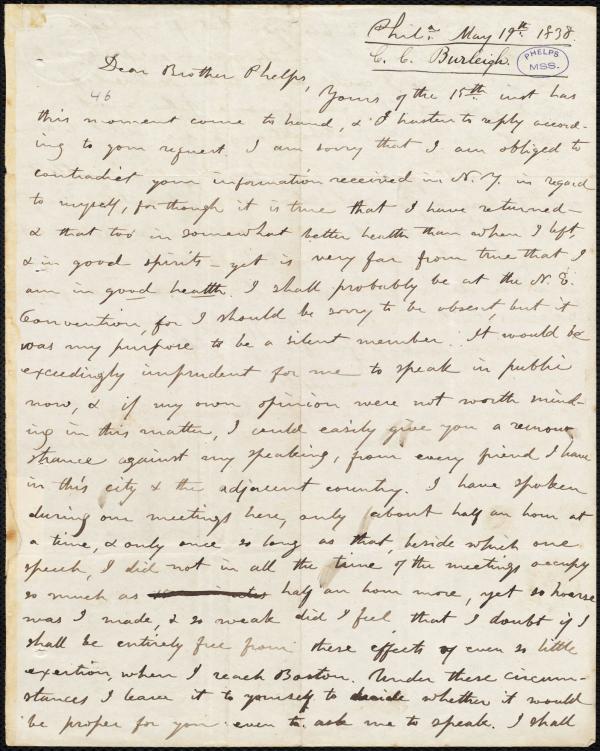 Phila. May 19th 1838.
C. C. Burleigh.
PHELPS MSS.
Dear Brother Phelps,
46
Yours of the 15th inst has
this moment come to hand, & I hasten to reply accord-
ing to your request. I am sorry that I am obliged to
contradict your information received in N. Y. in regard
to myself, for though it is true that I have returned—
& that too in somewhat better health than when I left,
& in good spirits— yet is very far from true that I
am in good health. I shall probably be at the N. E.
Convention, for I should be sorry to be absent, but it
was my purpose to be a silent member. It would be
exceedingly imprudent for me to speak in public
now, & if my own opinion were not worth mind-
ing in this matter, I could easily give you a remon-
strance against my speaking, from every friend I have
in this city & the adjacent country. I have spoken
during our meetings here, only about half an hour at
a time, & only once so long as that, beside which one
speech, I did not in all the time of the meetings occupy
so much as half an hour more, yet so hoarse
was I made, & so weak did I feel that I doubt if I
shall be entirely free from these effects of even so little
exertion, when I reach Boston. Under these circum-
stances I leave it to yourself to decide whether it would
be proper for you even to ask me to speak. I shall